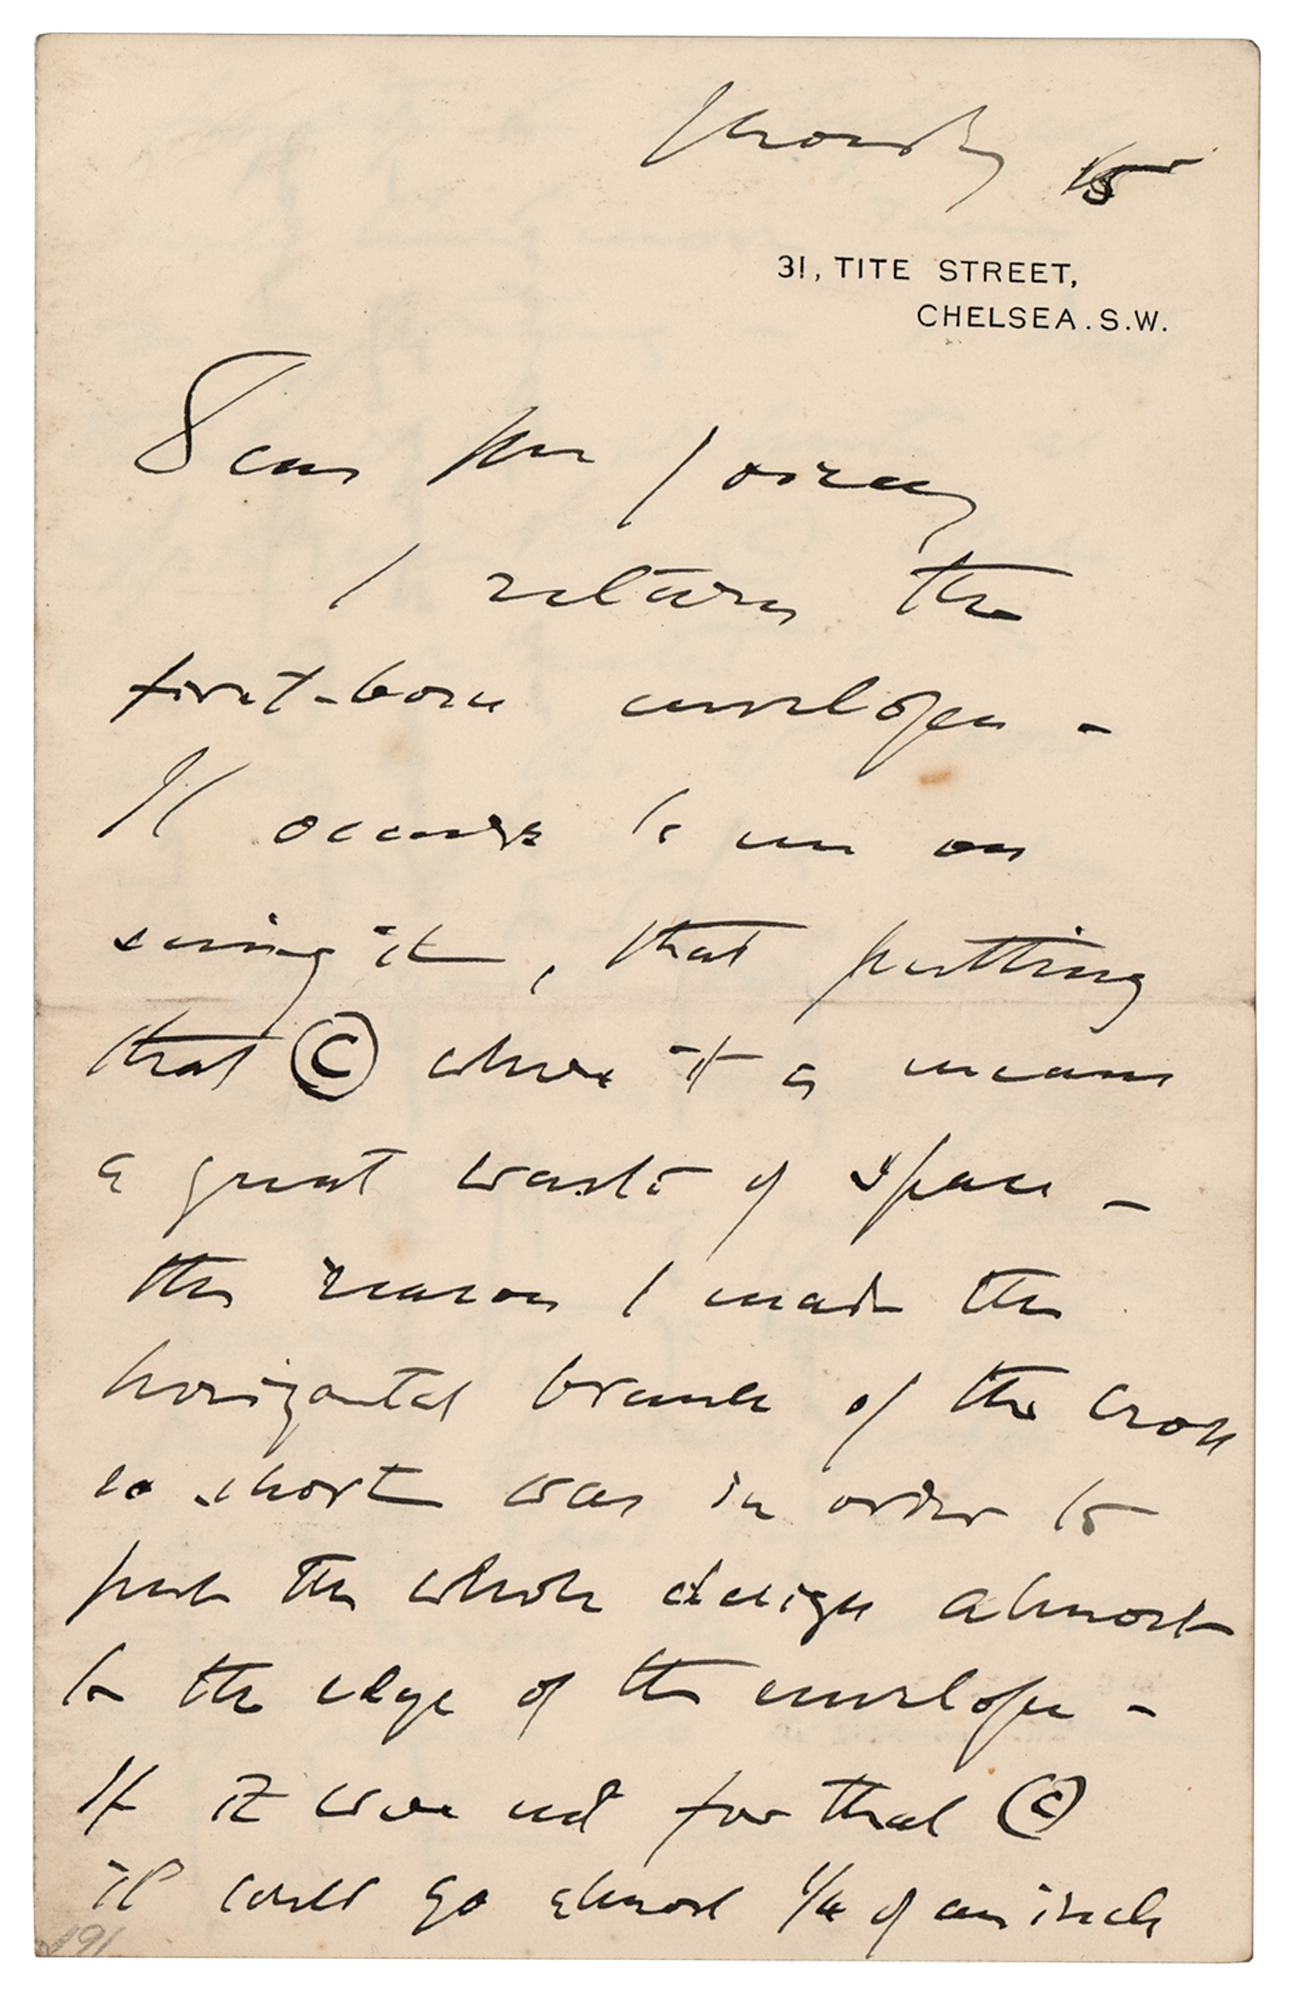 Monday 15
31, TITE STREET,
CHELSEA. S.W.
Dear Mr
I return the
first-born envelope -
It occurs to me on
seeing it, that putting
that © where it is means
a great waste of space -
the reason I made the
horizontal branch of the cross
so short was in order to
push the whole design almost
to the edge of the envelope -
If it were not for that ©
it could go almost 1/4 of an inch